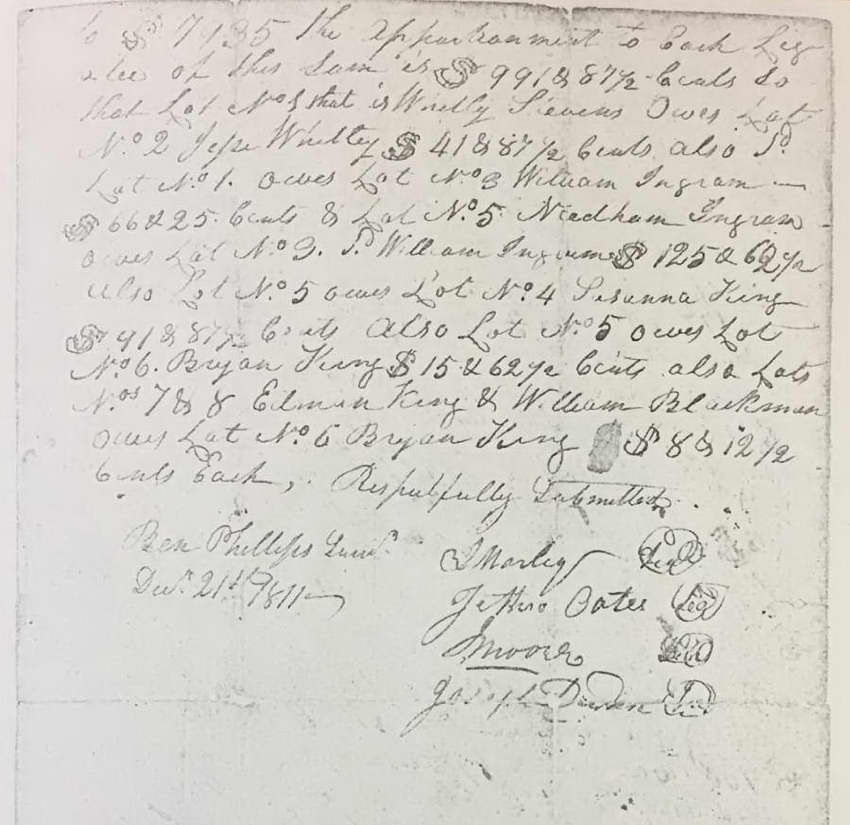 to $ 7935 the apportionment to Each Leg
atee of this Sum is $ 991 & 87 1/2 Cents So
that Lot No. 1 that is Stevens Owes Lot
No. 2 Jesse $ 41 & 87 1/2 Cents also Sd.
Lot No. 1. owes Lot No. 3 William Ingram —
$ 66 & 25 Cents & Lot No. 5 Needham Ingram
owes Lot No. 3. Sd. William Ingram $ 125 & 62 1/2
also Lot No. 5 owes Lot No. 4 Susanna King
$ 91 & 87 1/2 Cents Also Lot No. 5 owes Lot
No. 6. Bryan King $ 15 & 62 1/2 Cents also Lots
Nos 7 & 8 Edman King & William Blackman
owes Lot No. 6 Bryan King $ 8 & 12 1/2
Cents Each, Respectfully Submitted.
Ben Phillips
Decr. 21st 1811
(Seal)
Jethro Oates (Seal)
Moore (Seal)
Joseph (Seal)